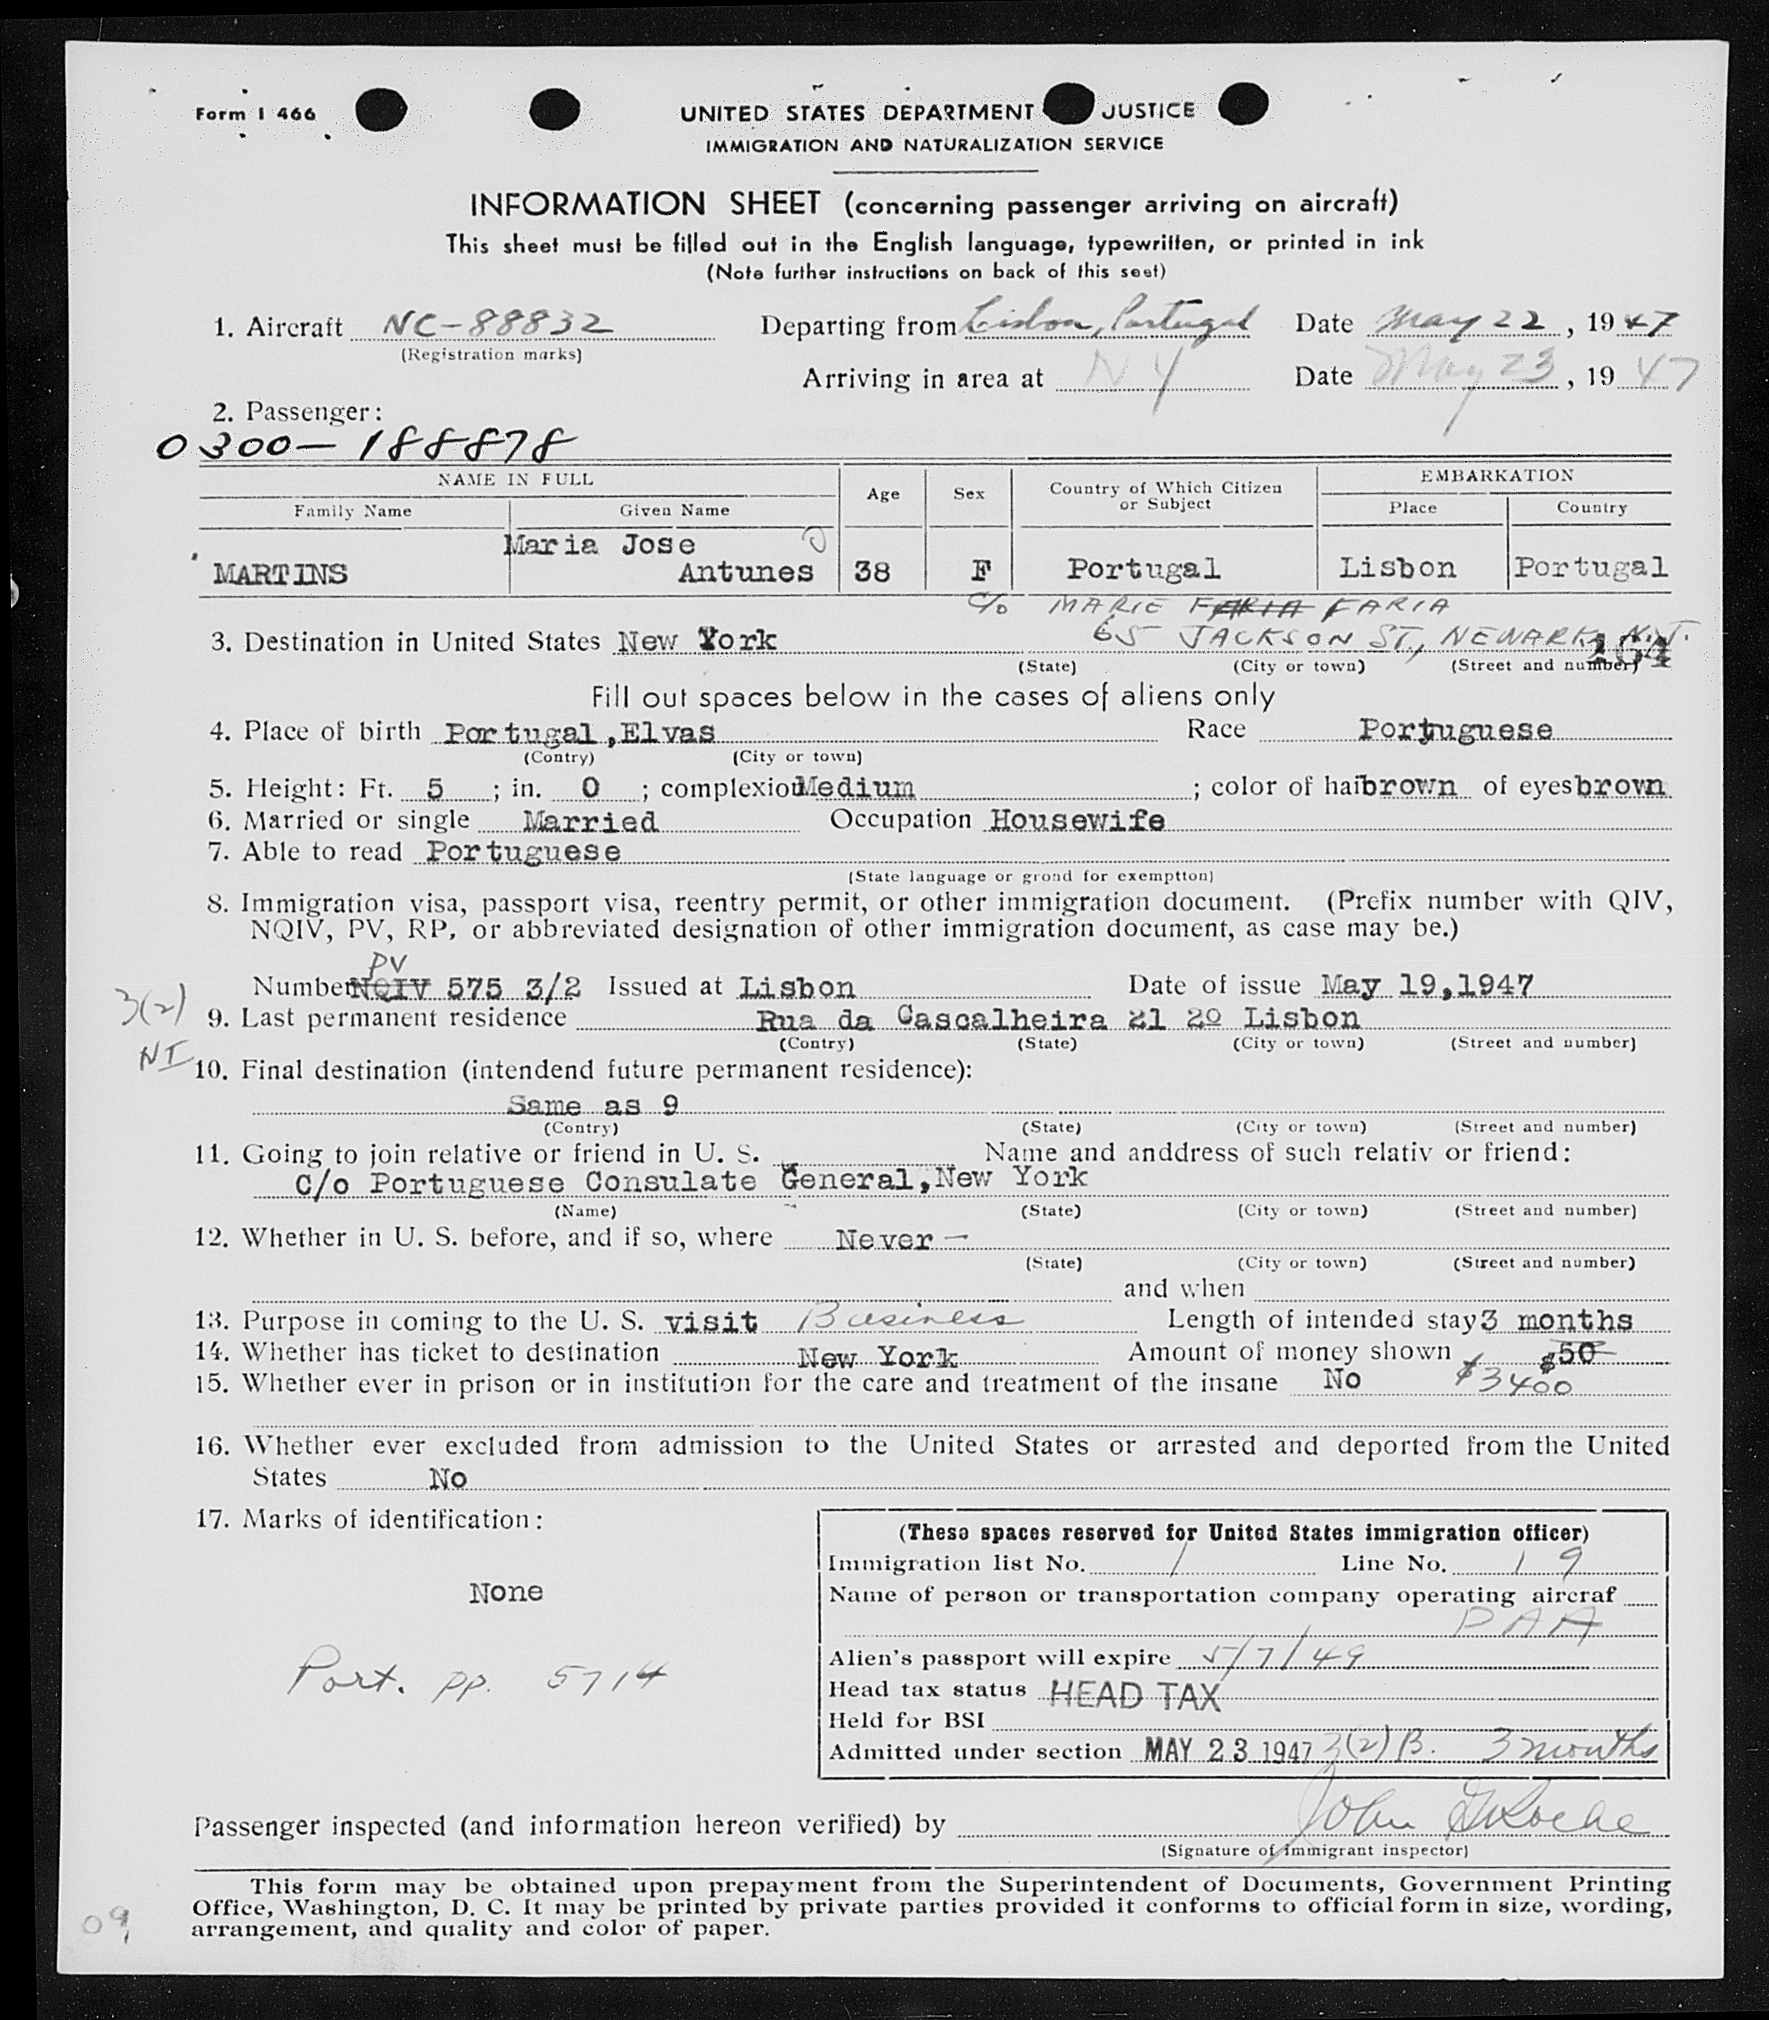 Form I 466
UNITED STATES DEPARTMENT JUSTICE
IMMIGRATION AND NATURALIZATION SERVICE
INFORMATION SHEET (concerning passenger arriving on aircraft)
This sheet must be filled out in the English language, typewritten, or printed in ink
(Note further instructions on back of this seet)
1. Aircraft NC-88832 Departing from Lisbon, Portugal Date May 22, 1947
(Registration marks)
Arriving in area at NY Date May 23, 1947
2. Passenger:
0300-188878
NAME IN FULL Age Sex Country of Which Citizen or Subject EMBARKATION
Family Name Given Name Place Country
Maria Jose
MARTINS Antunes 38 F Portugal Lisbon Portugal
c/o MARIE FARIA FARIA
3. Destination in United States New York 65 JACKSON ST., NEWARK, N.J.
(State) (City or town) (Street and number) 164
Fill out spaces below in the cases of aliens only
4. Place of birth Portugal,Elvas Race Portuguese
(Contry) (City or town)
5. Height: Ft. 5 ; in. 0 ; complexion Medium ; color of hair brown of eyes brown
6. Married or single Married Occupation Housewife
7. Able to read Portuguese
(State language or grond for exemptton)
8. Immigration visa, passport visa, reentry permit, or other immigration document. (Prefix number with QIV,
NQIV, PV, RP, or abbreviated designation of other immigration document, as case may be.)
PV
Number NQIV 575 3/2 Issued at Lisbon Date of issue May 19,1947
3(2)
9. Last permanent residence Rua da Cascalheira 21 2º Lisbon
(Contry) (State) (City or town) (Street and number)
NI
10. Final destination (intendend future permanent residence):
Same as 9
(Contry) (State) (City or town) (Street and number)
11. Going to join relative or friend in U. S. Name and anddress of such relativ or friend:
C/o Portuguese Consulate General,New York
(Name) (State) (City or town) (Street and number)
12. Whether in U. S. before, and if so, where Never -
(State) (City or town) (Street and number)
and when
13. Purpose in coming to the U. S. visit Business Length of intended stay 3 months
14. Whether has ticket to destination New York Amount of money shown $50
15. Whether ever in prison or in institution for the care and treatment of the insane No $3400
16. Whether ever excluded from admission to the United States or arrested and deported from the United
States No
17. Marks of identification:
None
Port. pp. 5714
(These spaces reserved for United States immigration officer)
Immigration list No. 1 Line No. 19
Name of person or transportation company operating aircraf
PAA
Alien's passport will expire 5/7/49
Head tax status HEAD TAX
Held for BSI
Admitted under section MAY 23 1947 3(2)B. 3 months
Passenger inspected (and information hereon verified) by John
(Signature of immigrant inspector)
This form may be obtained upon prepayment from the Superintendent of Documents, Government Printing
Office, Washington, D. C. It may be printed by private parties provided it conforms to official form in size, wording,
arrangement, and quality and color of paper.
09